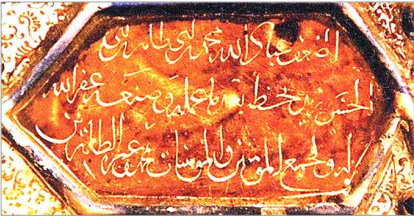 اضعف عباد الله محمد بن ابي طاهر بن ابي
الحسين بخطه بعد ما عمله و صنعه غفر الله
له ولجميع المؤمنين والمؤمنات بمحمد وعترته الطاهرين